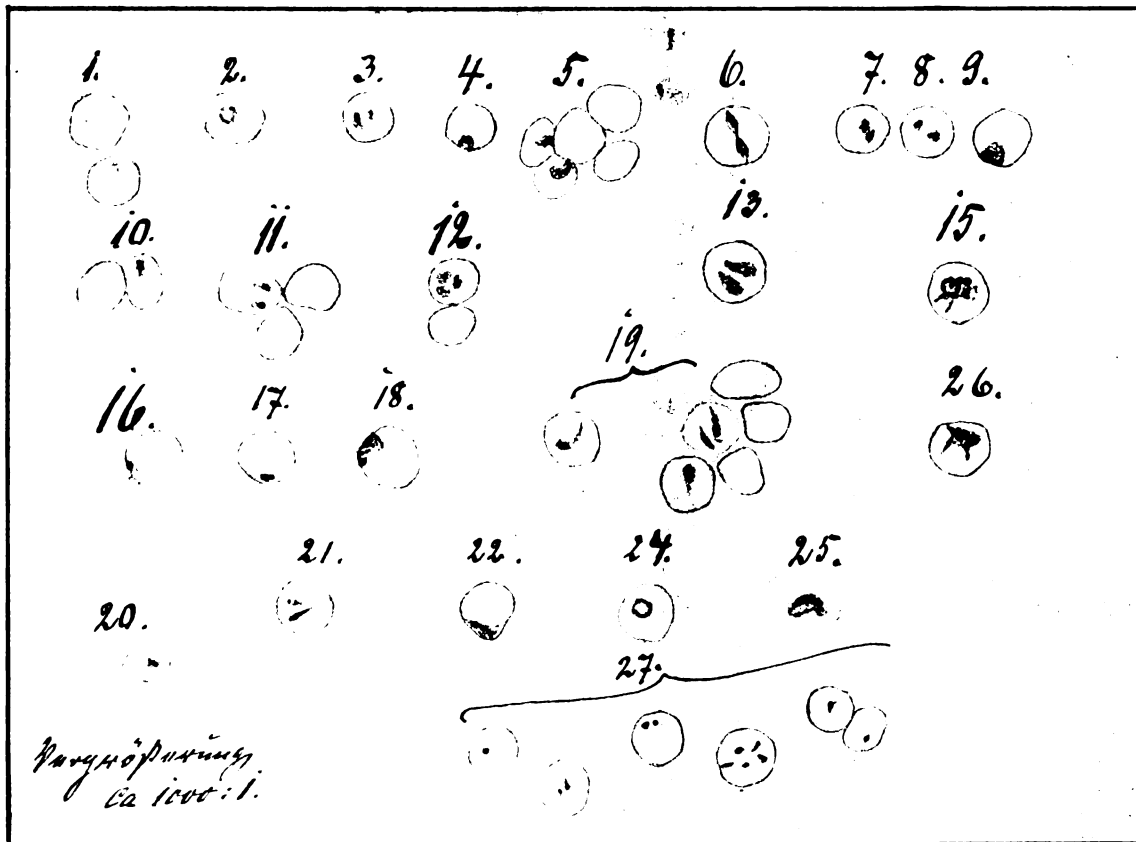 1. 2. 3. 4. 5. 6. 7. 8. 9.
10. 11. 12. 13. 15.
16. 17. 18. 19. 26.
20. 21. 22. 24. 25.
27.
Vergrößerung
ca 1000:1.